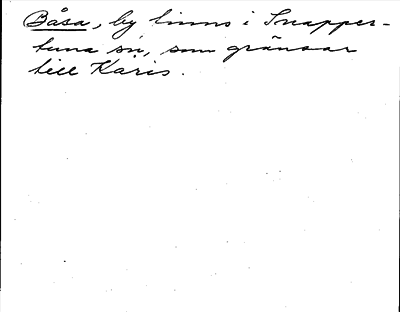 Båsa, by finns i Snapper-
tuna sn, som gränsar
till Karis.